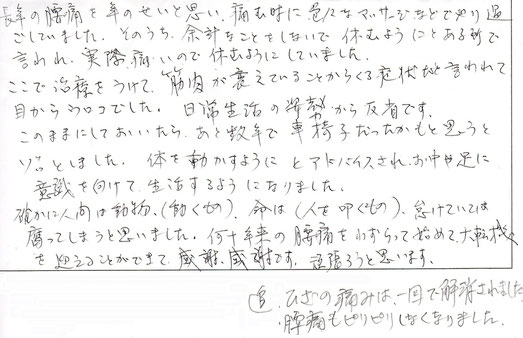 長年の腰痛を年のせいと思い、痛む時に色々なマッサージなどでやり過
ごしていました。そのうち、余計なことをしないで休むようにとある所で
言われ、実際痛いので休むようにしていました。
ここで治療をうけて、筋肉が衰えていることからくる症状だと言われて
目からウロコでした。日常生活の姿勢から反省です。
このままにしておいたら、あと数年で車椅子だったかもと思うと
ゾッとしました。体を動かすようにとアドバイスされ、お中や足に
意識を向けて生活するようになりました。
確かに人間は動物、(動くもの)、命は(人を叩くもの)、怠けていては
腐ってしまうと思いました。何十年来の腰痛をわずらって始めて、大転機
を迎えることができて、感謝、感謝です。頑張ろうと思います。
追、ひざの痛みは、一回で解消されました
腰痛もピリピリしなくなりました。